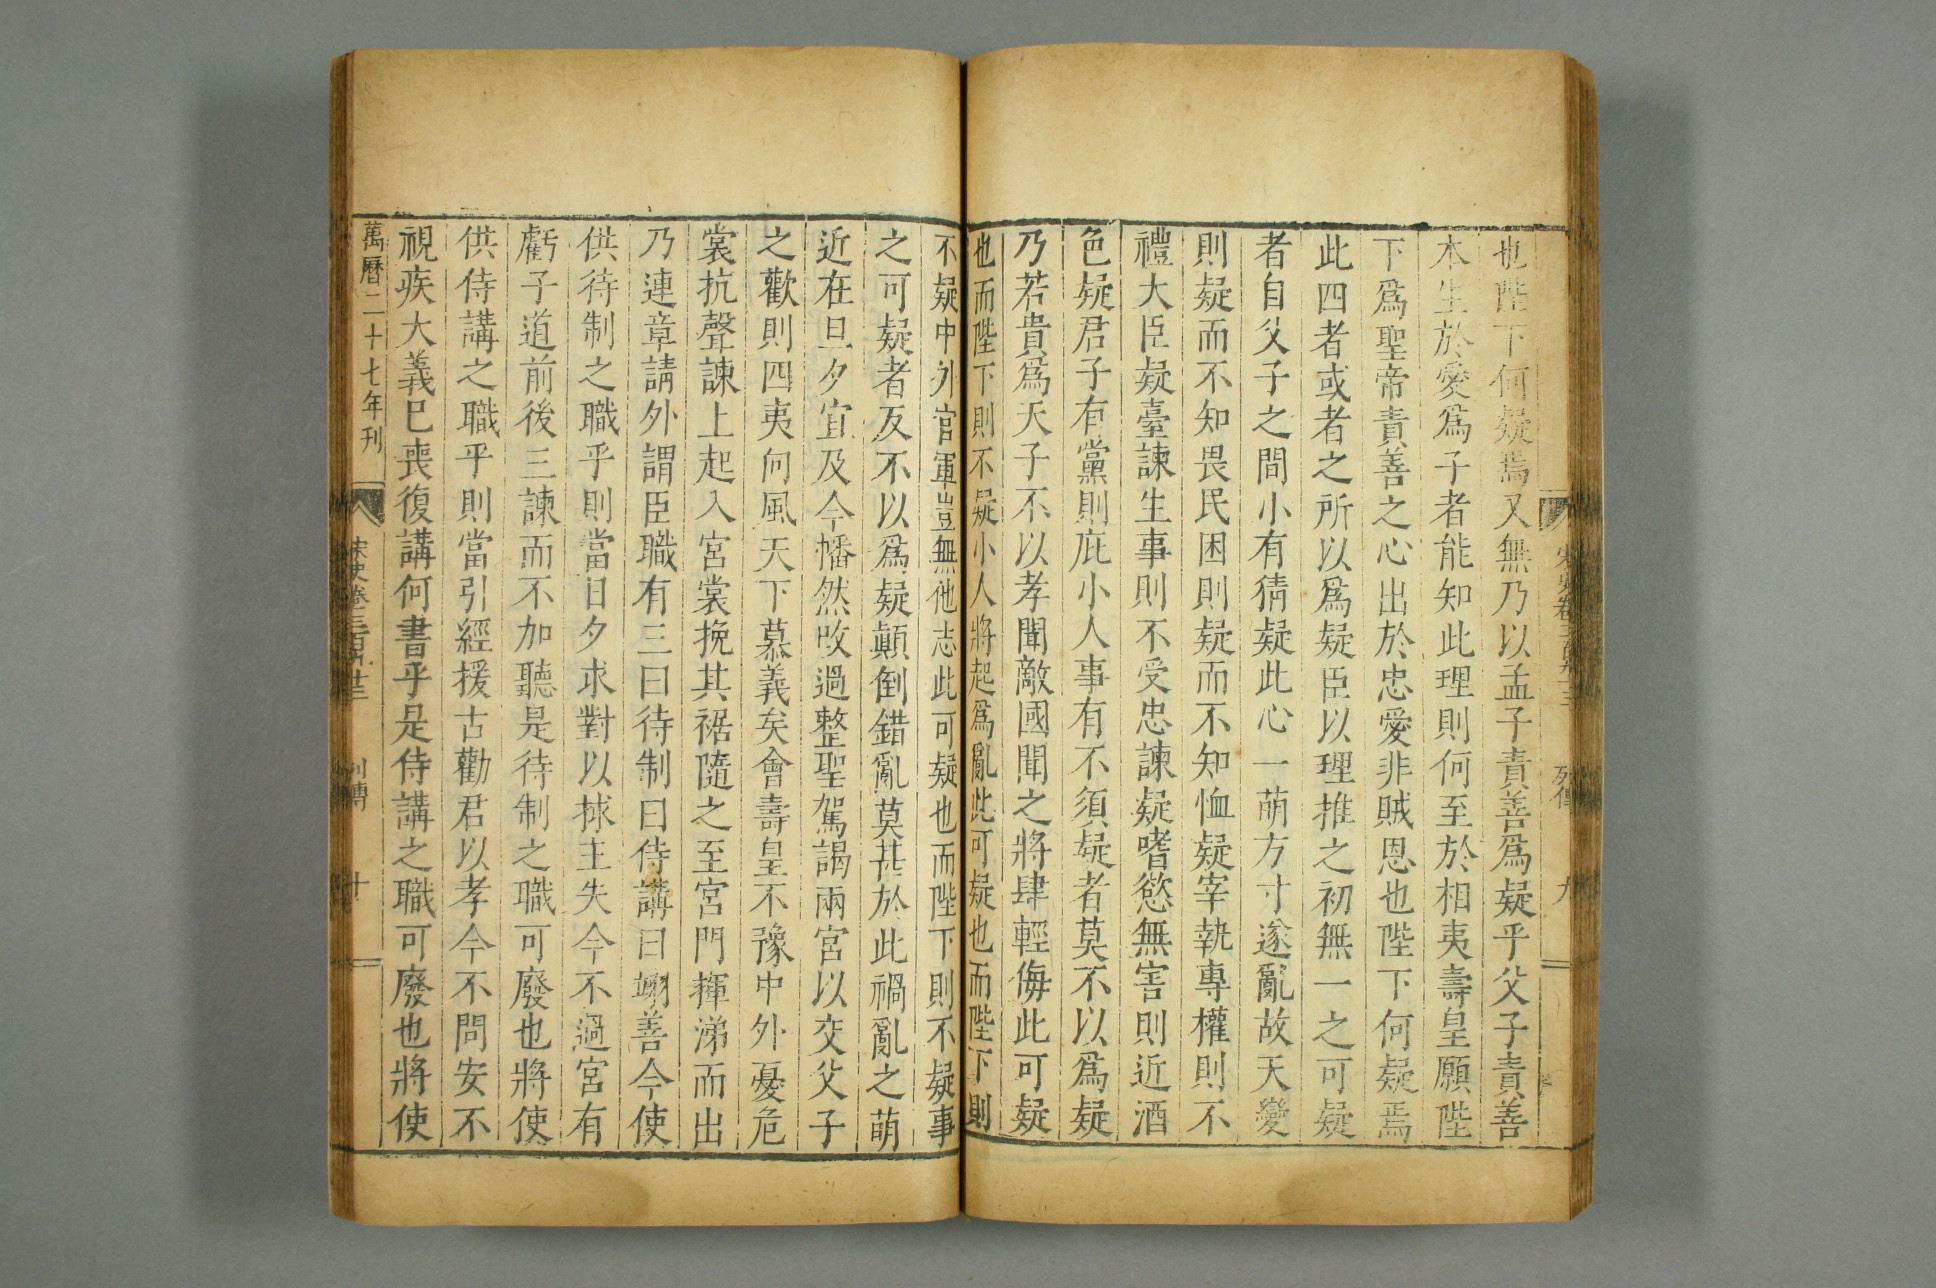 宋史卷三百九十三 列傳 九
也陛下何疑焉又無乃以孟子責善爲疑乎父子責善
本生於愛爲子者能知此理則何至於相夷壽皇願陛
下爲聖帝責善之心出於忠愛非賊恩也陛下何疑焉
此四者或者之所以爲疑臣以理推之初無一之可疑
者自父子之間小有猜疑此心一萌方寸遂亂故天變
則疑而不知畏民困則疑而不知恤疑宰執專權則不
禮大臣疑臺諫生事則不受忠諫疑嗜慾無害則近酒
色疑君子有黨則庇小人事有不須疑者莫不以爲疑
乃若貴爲天子不以孝聞敵國聞之將肆輕侮此可疑
也而陛下則不疑小人將起爲亂此可疑也而陛下則
不疑中外官軍豈無他志此可疑也而陛下則不疑事
之可疑者反不以爲疑顛倒錯亂莫甚於此禍亂之萌
近在旦夕宜及今幡然改過整聖駕謁兩宮以交父子
之歡則四夷向風天下慕義矣會壽皇不豫中外憂危
裳抗聲諫上起入宮裳挽其裾隨之至宮門揮涕而出
乃連章請外謂臣職有三曰待制曰侍講曰翊善今使
供待制之職乎則當日夕求對以捄主失今不過宮有
虧子道前後三諫而不加聽是待制之職可廢也將使
供侍講之職乎則當引經援古勸君以孝今不問安不
視疾大義已喪復講何書乎是侍講之職可廢也將使
萬曆二十七年刊 宋史卷三百九十三 列傳 十